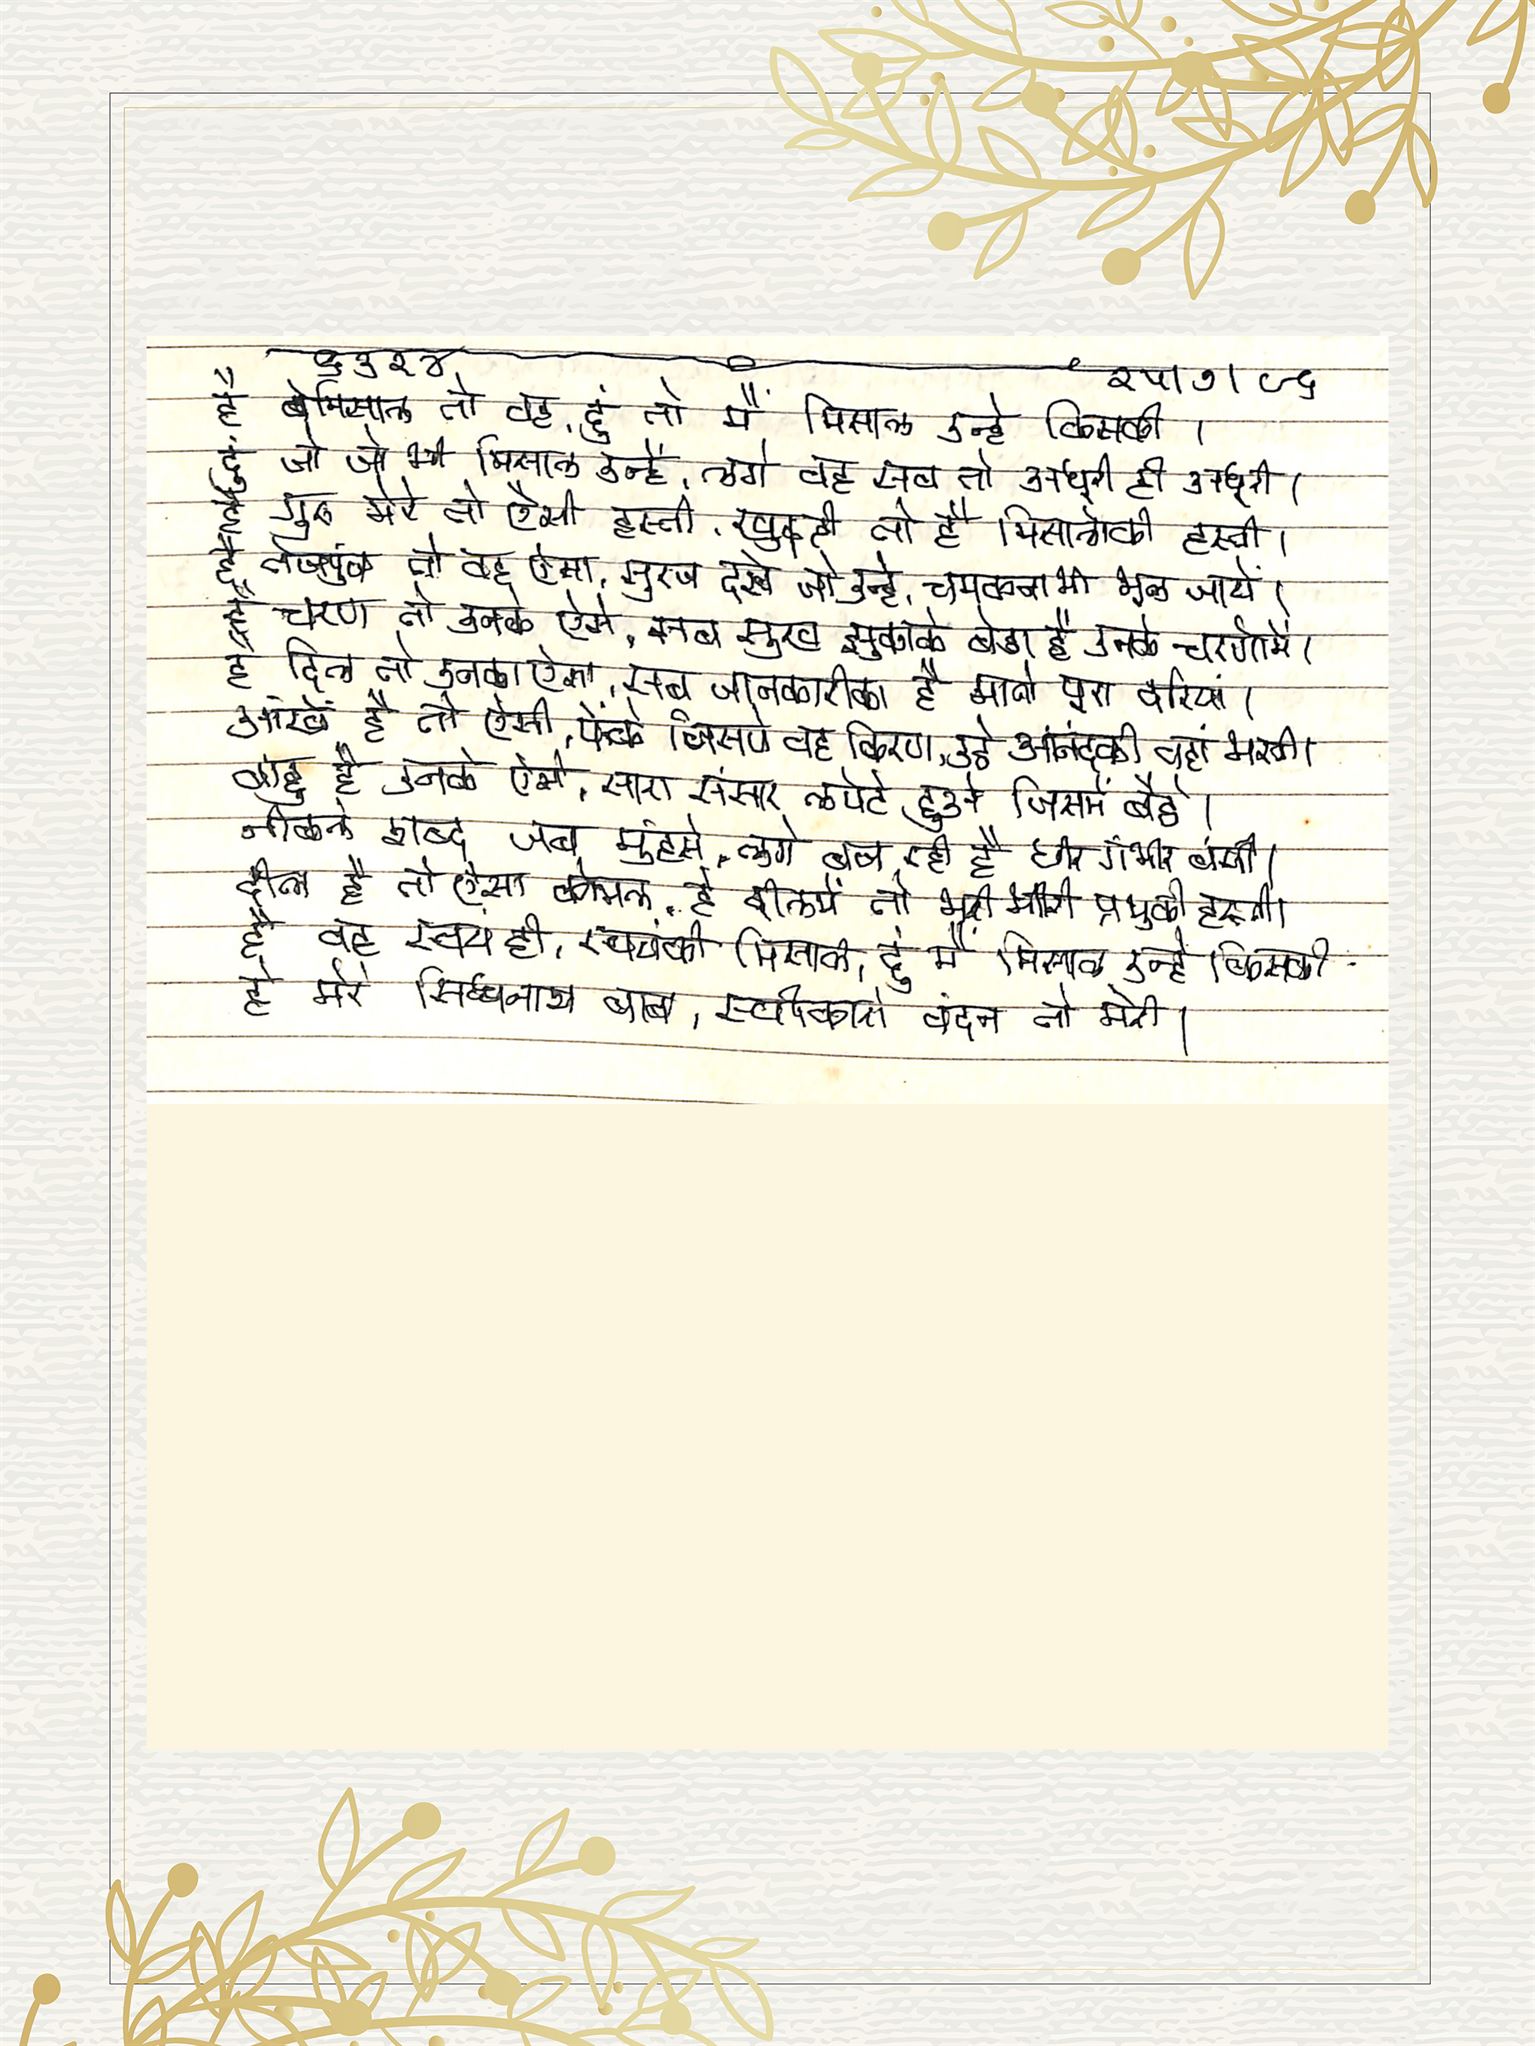 २५।७।८६
है बेमिसाल तो वह, दुं तो मैं मिसाल उन्हे किसकी ।
दुं जो जो भी मिसाल उन्हें, लगे वह सब तो अधूरी ही अधूरी ।
है गुरु मेरे तो ऐसी हस्ती, खुद ही तो है मिसालोकी हस्ती ।
है तेजपुंज तो वह ऐसा, सुरज देखे जो उन्हे, चमकना भी भूल जाये ।
है चरण तो उनके ऐसे, सब सुख झुकाके बैठा है उनके चरणोमें ।
है दिल तो उनका ऐसा, सब जानकारीका है मानो पूरा दरिया ।
आंखें है तो ऐसी, फेंके जिसपे वह किरण, उठे आनंदकी वहां भरती ।
बाहु है उनके ऐसे, सारा संसार लपेटे हुअे जिसमें बैठे ।
नीकले शब्द जब मुंहसे, लगे बज रही है धीर गंभीर बंसी ।
दील है तो ऐसा कोमल, है दीलमें तो भरी प्रभुकी हस्ती ।
है वह स्वयं ही, स्वयंकी मिसाल, दुं मैं मिसाल उन्हे किसकी .
हे मेरे सिध्धनाथ बाबा, स्वीकारो वंदन तो मेरी ।